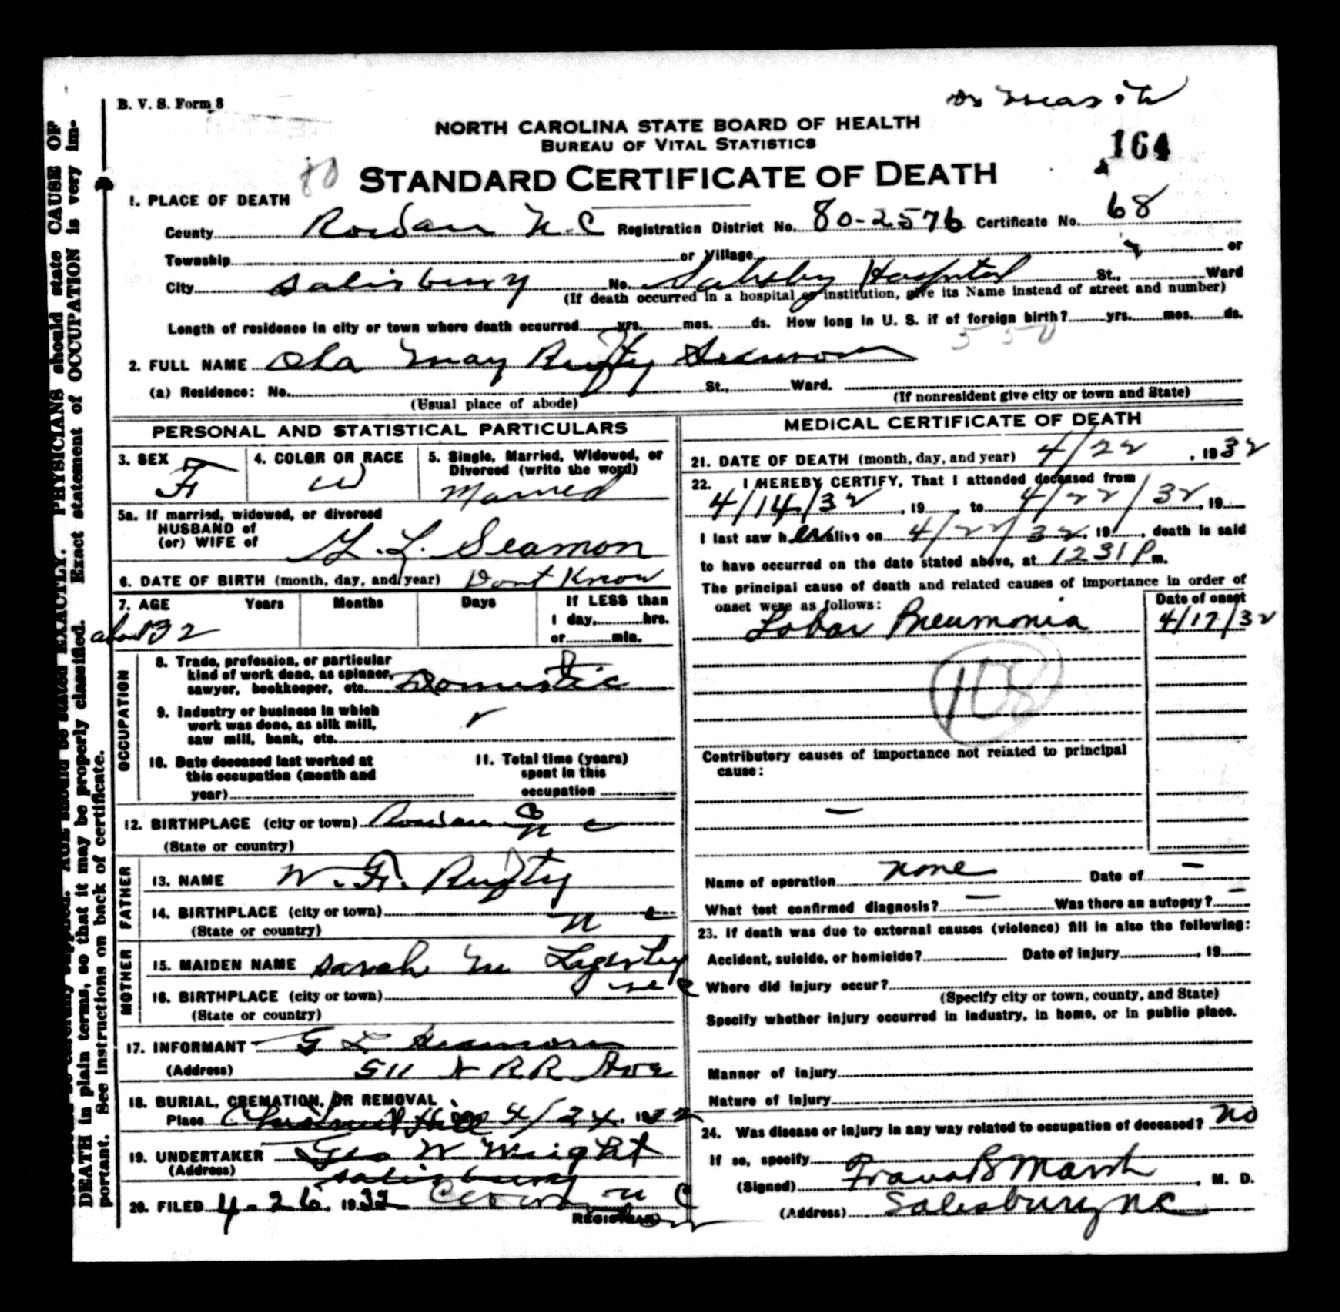 B. V. S. Form 8
Dr Marsh
NORTH CAROLINA STATE BOARD OF HEALTH
BUREAU OF VITAL STATISTICS
164
80 STANDARD CERTIFICATE OF DEATH
1. PLACE OF DEATH
County Rowan N.C Registration District No. 80-2576 Certificate No. 68
Township or Village or
City Salisbury No. Salsby Hospital St., Ward
(If death occurred in a hospital or institution, give its Name instead of street and number)
Length of residence in city or town where death occurred yrs. mos. ds. How long in U. S. if of foreign birth? yrs. mos. ds.
550
2. FULL NAME Ola May Rufty Seamon
(a) Residence: No. St., Ward.
(Usual place of abode) (If nonresident give city or town and State)
PERSONAL AND STATISTICAL PARTICULARS
3. SEX F
4. COLOR OR RACE W
5. Single, Married, Widowed, or
Divorced (write the word)
Married
5a. If married, widowed, or divorced
HUSBAND of
(or) WIFE of G. L. Seamon
6. DATE OF BIRTH (month, day, and year) Dont Know
7. AGE Years Months Days If LESS than
1 day, hrs.
or min.
about 32
OCCUPATION
8. Trade, profession, or particular
kind of work done, as spinner,
sawyer, bookkeeper, etc. Domestic
9. Industry or business in which
work was done, as silk mill,
saw mill, bank, etc.
10. Date deceased last worked at
this occupation (month and
year)
11. Total time (years)
spent in this
occupation
12. BIRTHPLACE (city or town) Rowan Co
(State or country) N C
FATHER
13. NAME W. F. Rufty
14. BIRTHPLACE (city or town)
(State or country) N C
MOTHER
15. MAIDEN NAME Sarah M
16. BIRTHPLACE (city or town) N C
(State or country)
17. INFORMANT G L Seamon
(Address) 511 N RR Ave
18. BURIAL, CREMATION, OR REMOVAL
Place Chestnut Hill Date 4/24. 1932
19. UNDERTAKER Geo W Wright
(Address) Salisbury
20. FILED 4-26. 1932 N C
REGISTRAR
MEDICAL CERTIFICATE OF DEATH
21. DATE OF DEATH (month, day, and year) 4/22, 1932
22. I HEREBY CERTIFY, That I attended deceased from
4/14/32, 19 to 4/22/32, 19
I last saw her alive on 4/22/32. 19, death is said
to have occurred on the date stated above, at 1231 P m.
The principal cause of death and related causes of importance in order of
onset were as follows: Date of onset
Lobar Pneumonia 4/17/32
108
Contributory causes of importance not related to principal
cause:
—
Name of operation none Date of —
What test confirmed diagnosis? — Was there an autopsy? —
23. If death was due to external causes (violence) fill in also the following:
Accident, suicide, or homicide? Date of injury, 19
Where did injury occur?
(Specify city or town, county, and State)
Specify whether injury occurred in industry, in home, or in public place.
Manner of injury
Nature of injury
24. Was disease or injury in any way related to occupation of deceased? no
If so, specify
(Signed) B Marsh, M. D.
(Address) Salisbury, NC
PHYSICIANS should state CAUSE OF
Exact statement of OCCUPATION is very im-
DEATH in plain terms, so that it may be properly classified.
portant. See instructions on back of certificate.